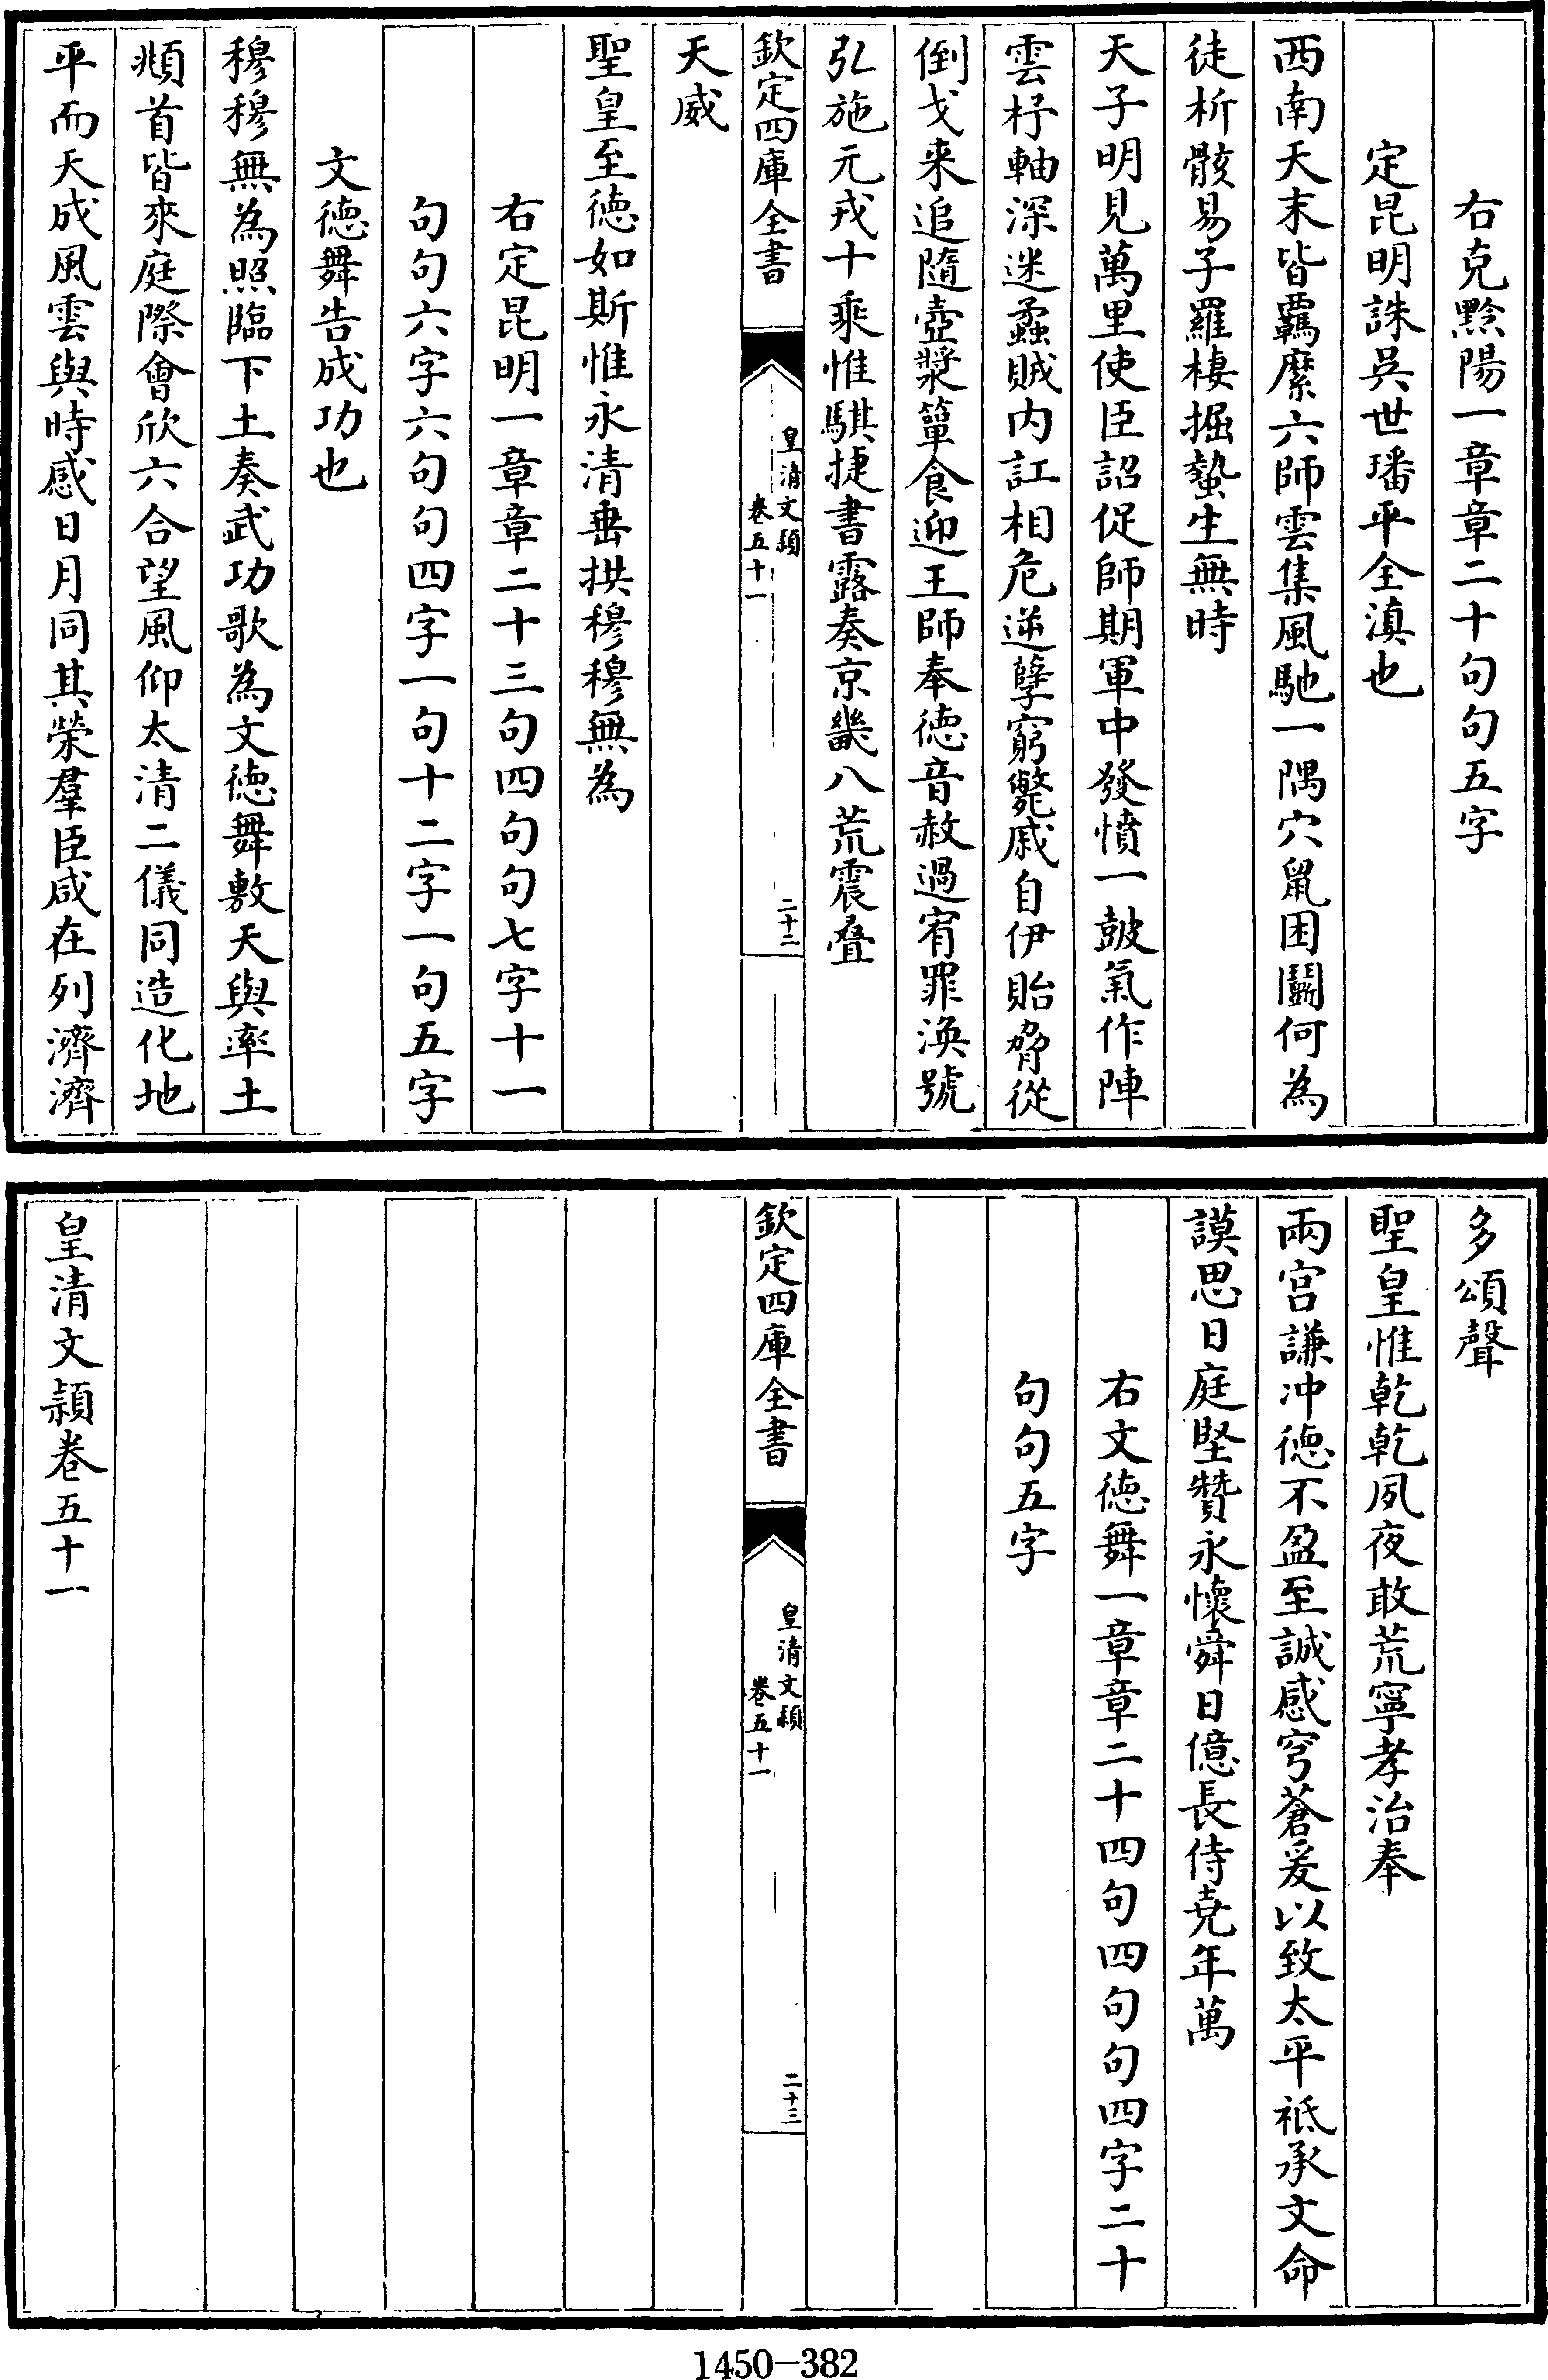 右克黔陽一章章二十句句五字
定昆明誅吳世璠平全滇也
西南天末皆羈縻六師雲集風馳一隅穴鼠困鬭何為
徒析骸易子羅棲掘蟄生無時
天子明見萬里使臣詔促師期軍中發憤一鼓氣作陣
雲杼軸深迷蟊賊内訌相危逆孽窮斃戚自伊貽脅從
倒戈来追隨壺漿簞食迎王師奉徳音赦過宥罪渙號
弘施元戎十乘惟騏捷書露奏京畿八荒震疊
欽定四庫全書
皇清文穎
卷五十一
二十二
天威
聖皇至徳如斯惟永清垂拱穆穆無為
右定昆明一章章二十三句四句句七字十一
句句六字六句句四字一句十二字一句五字
文徳舞告成功也
穆穆無為照臨下土奏武功歌為文徳舞敷天與率土
頫首皆來庭際會欣六合望風仰太清二儀同造化地
平而天成風雲與時感日月同其榮羣臣咸在列濟濟
多頌聲
聖皇惟乾乾夙夜敢荒寧孝治奉
兩宫謙冲徳不盈至誠感穹蒼爰以致太平祗承文命
謨思日庭堅贊永懷舜日億長侍堯年萬
右文徳舞一章章二十四句四句句四字二十
句句五字
欽定四庫全書
皇清文穎
卷五十一
二十三
皇清文穎卷五十一
1450-382